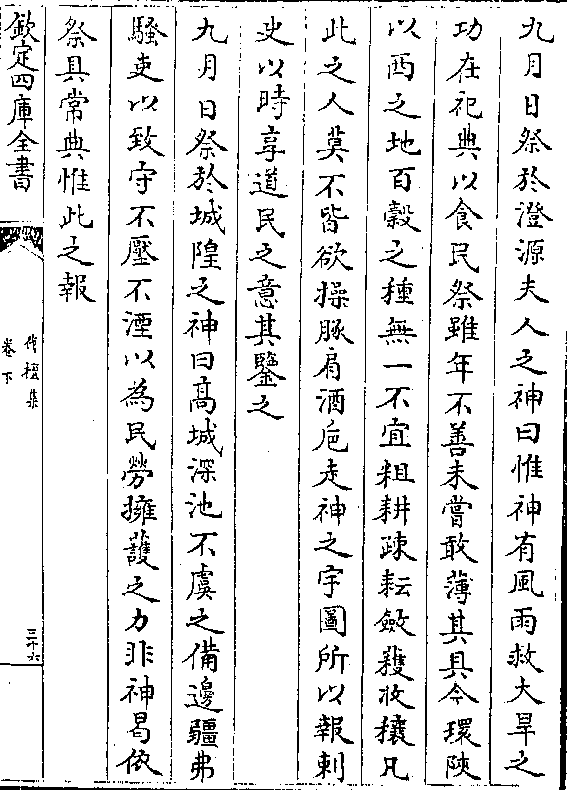 九月日祭於澄源夫人之神曰惟神有風雨救大旱之
功在祀典以食民祭雖年不善未嘗敢薄其具今環陝
以西之地百穀之種無一不宜粗耕疎耘斂穫收穰凡
此之人莫不皆欲操豚肩酒卮走神之宇圖所以報刺
史以時享道民之意其鑒之
九月日祭於城隍之神曰高城深池不虞之備邊疆弗
騷吏以致守不壓不湮以為民勞擁䕶之力非神曷依
祭具常典惟此之報
欽定四庫全書
伐檀集
卷下
三十六